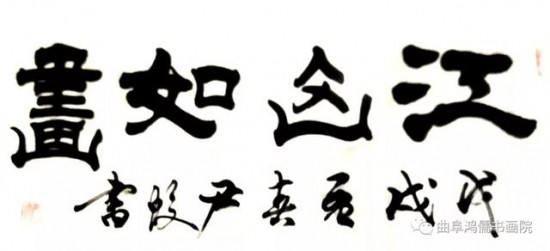 江山如畫
戊戌春尹書
曲阜鸿儒书画院